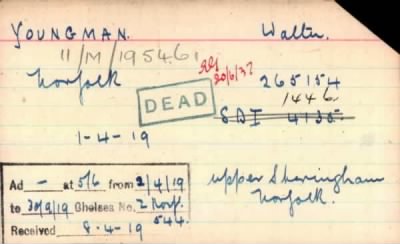 YOUNGMAN. Walter.
11/M/195461.
Norfolk 20/6/37 265154
DEAD 1446.
SDI 4135.
1-4-19
Ad — at 5/6 from 2/4/19
to 30/9/19 Chelsea No. 2 Norf.
Received 8.4-19 544.
Upper Sheringham
Norfolk.